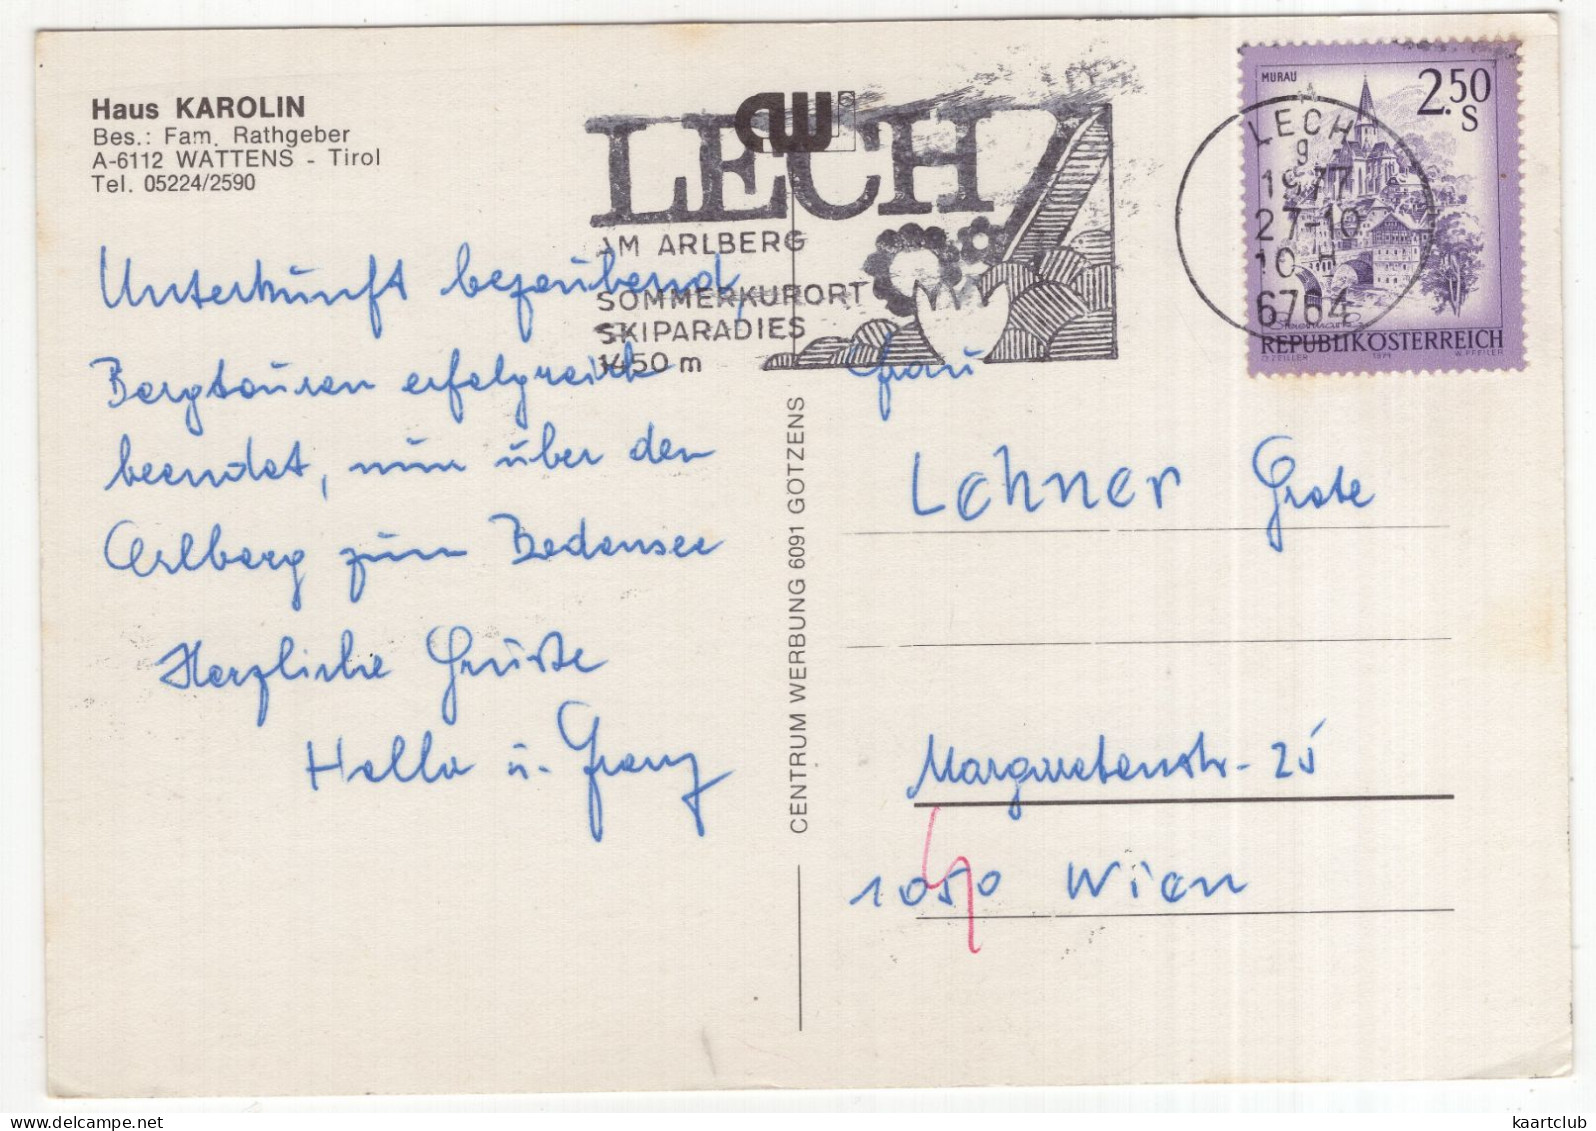 Haus KAROLIN
Bes.: Fam. Rathgeber
A-6112 WATTENS - Tirol
Tel. 05224/2590
Unterkunft bezaubernd,
Bergtouren erfolgreich
beendet, nun über den
Arlberg zum Bodensee
Herzliche Grüße
Hella u. Franz
CENTRUM WERBUNG 6091 GOTZENS
CW
LECH
AM ARLBERG
SOMMERKURORT
SKIPARADIES
1450 m
LECH
9
1977
27-10
10 H
6764
MURAU
2.50
S
REPUBLIK ÖSTERREICH
O. ZEILLER 1974 W. PFEILER
Frau
Lehner Grete
Margaretenstr. 25
1050 Wien
kaartclub
www.delcampe.net